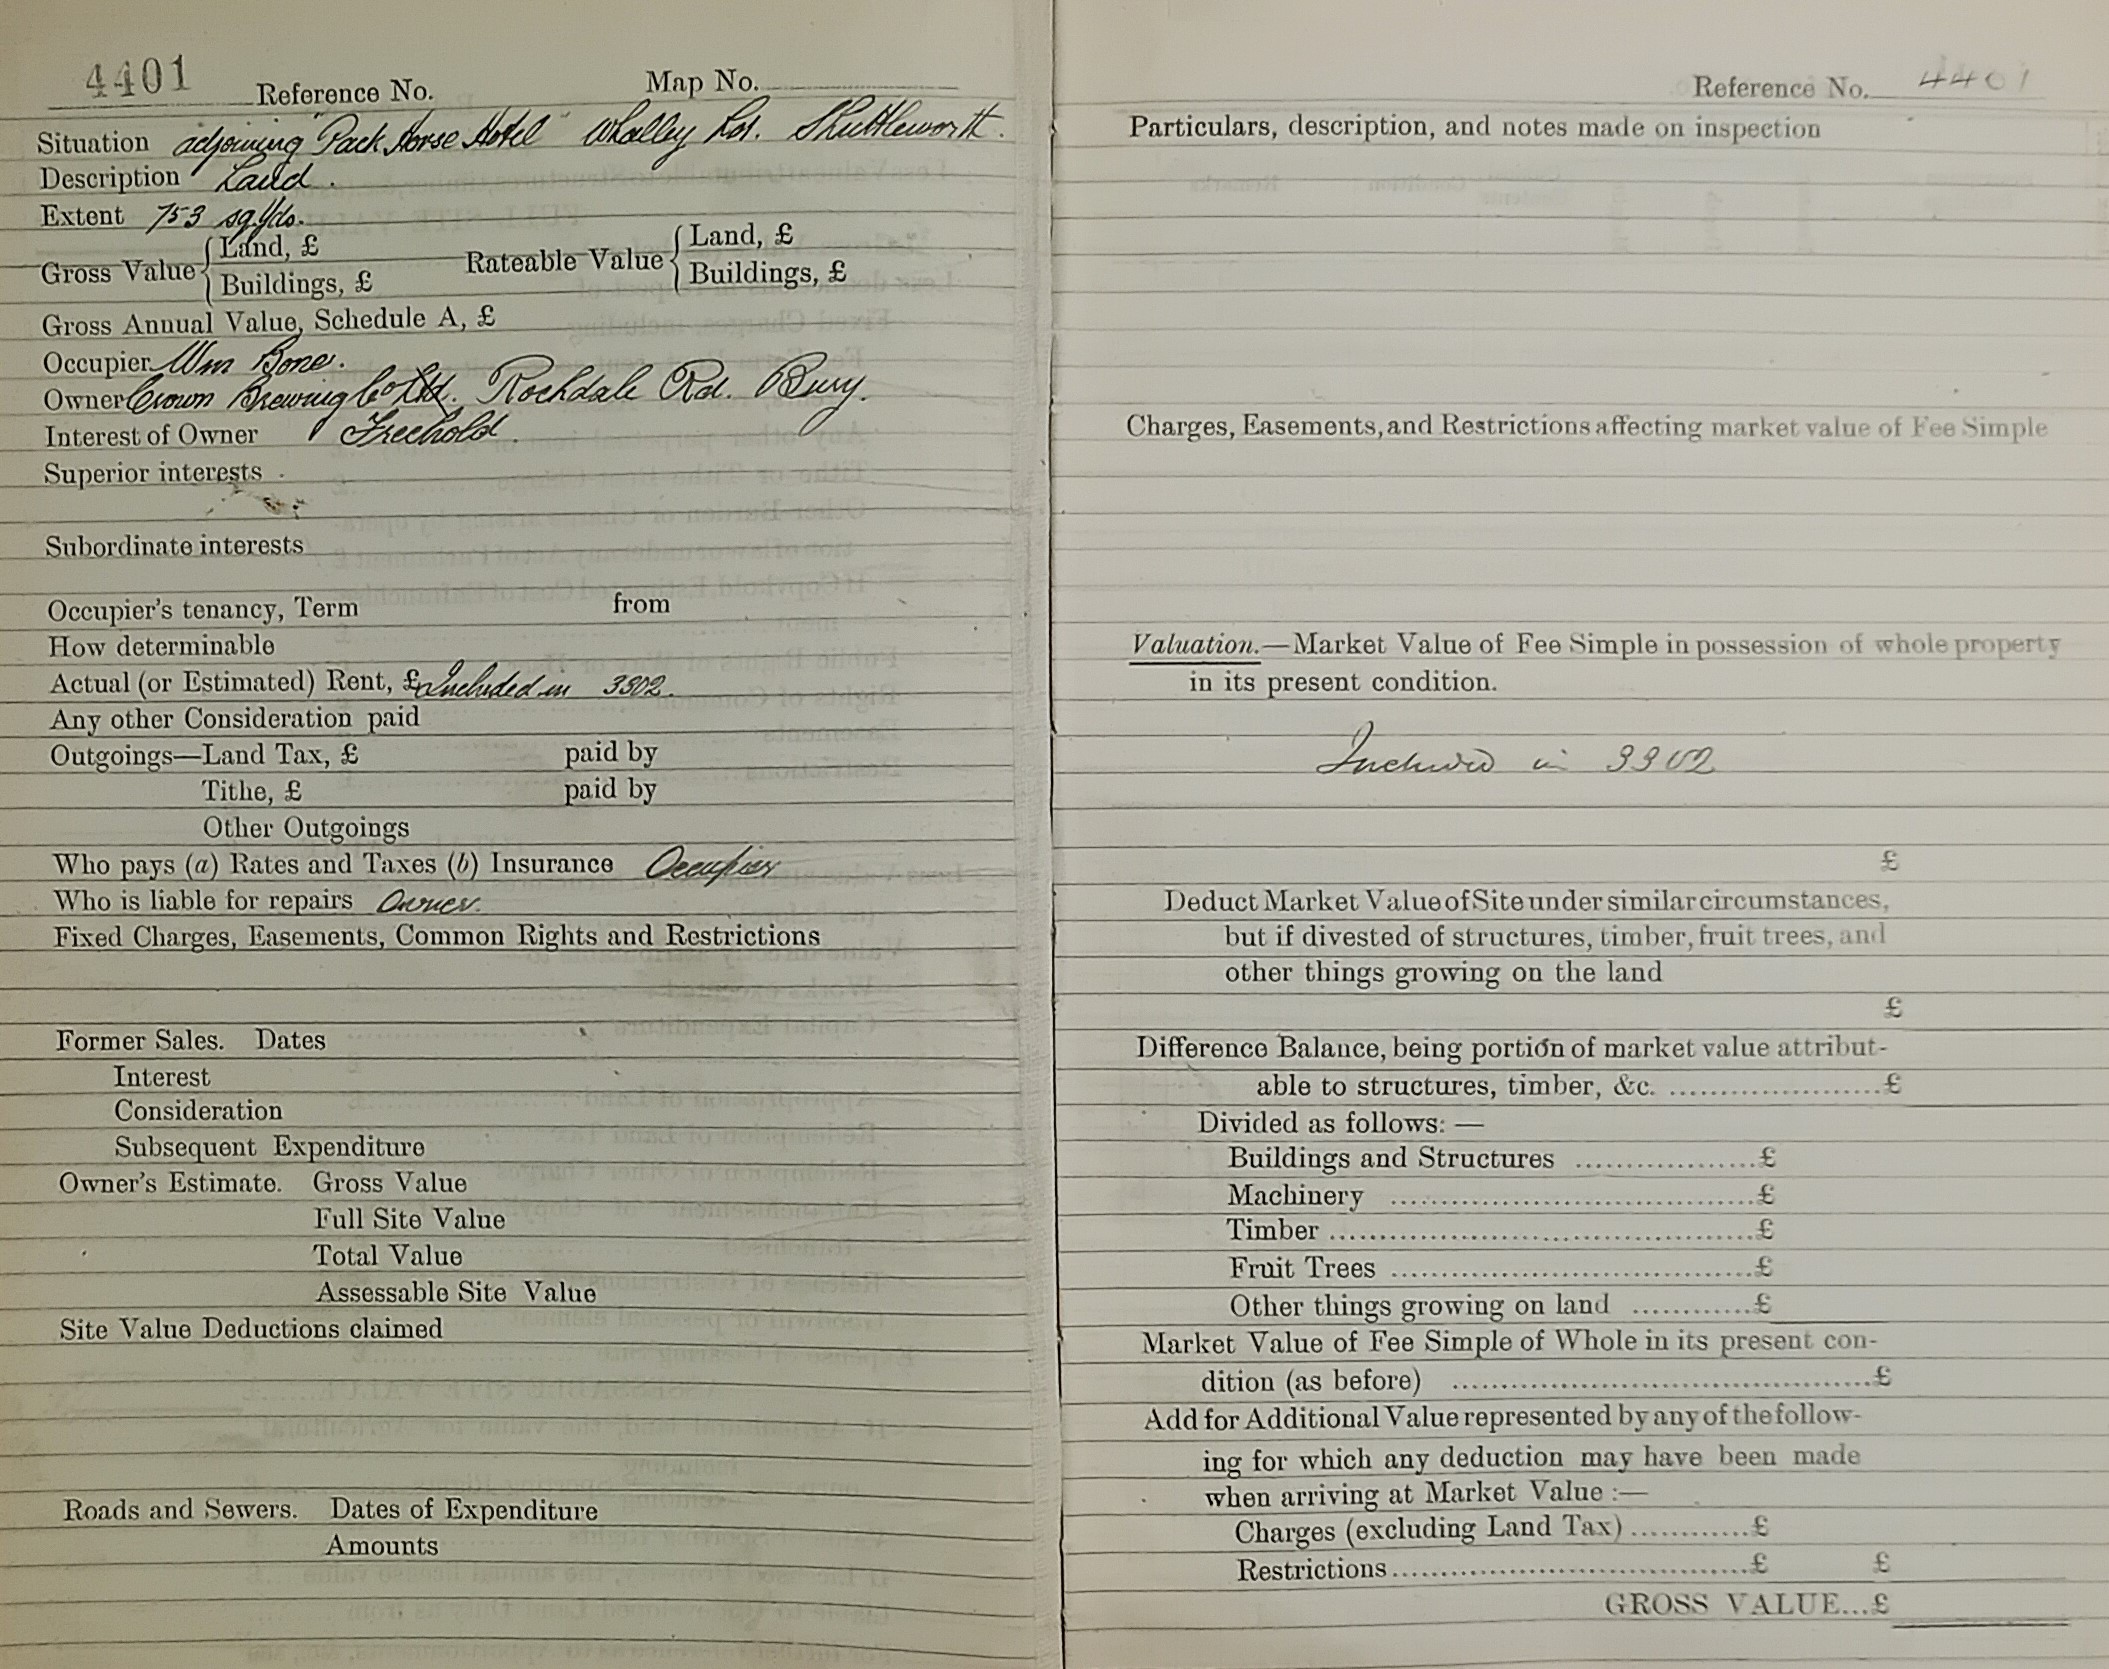 4401 Reference No. Map No.
Situation adjoining "Pack Horse Hotel" Whalley Rd. Shuttleworth.
Description Land.
Extent 753 sq. yds.
Gross Value { Land, £ Rateable Value { Land, £
Buildings, £ Buildings, £
Gross Annual Value, Schedule A, £
Occupier Wm Bone.
Owner Crown Brewing Co Ltd. Rochdale Rd. Bury.
Interest of Owner Freehold.
Superior interests
Subordinate interests
Occupier's tenancy, Term from
How determinable
Actual (or Estimated) Rent, £ Included in 3302.
Any other Consideration paid
Outgoings—Land Tax, £ paid by
Tithe, £ paid by
Other Outgoings
Who pays (a) Rates and Taxes (b) Insurance Occupier
Who is liable for repairs Owner.
Fixed Charges, Easements, Common Rights and Restrictions
Former Sales. Dates
Interest
Consideration
Subsequent Expenditure
Owner's Estimate. Gross Value
Full Site Value
Total Value
Assessable Site Value
Site Value Deductions claimed
Roads and Sewers. Dates of Expenditure
Amounts
Reference No. 4401
Particulars, description, and notes made on inspection
Charges, Easements, and Restrictions affecting market value of Fee Simple
Valuation.—Market Value of Fee Simple in possession of whole property
in its present condition.
Included in 3302
£
Deduct Market Value of Site under similar circumstances,
but if divested of structures, timber, fruit trees, and
other things growing on the land
£
Difference Balance, being portion of market value attribut-
able to structures, timber, &c. ....................£
Divided as follows: —
Buildings and Structures ...................£
Machinery ......................................£
Timber ..............................................£
Fruit Trees ......................................£
Other things growing on land ............£
Market Value of Fee Simple of Whole in its present con-
dition (as before) .............................................£
Add for Additional Value represented by any of the follow-
ing for which any deduction may have been made
when arriving at Market Value :—
Charges (excluding Land Tax) ............£
Restrictions ......................................£ £
GROSS VALUE...£